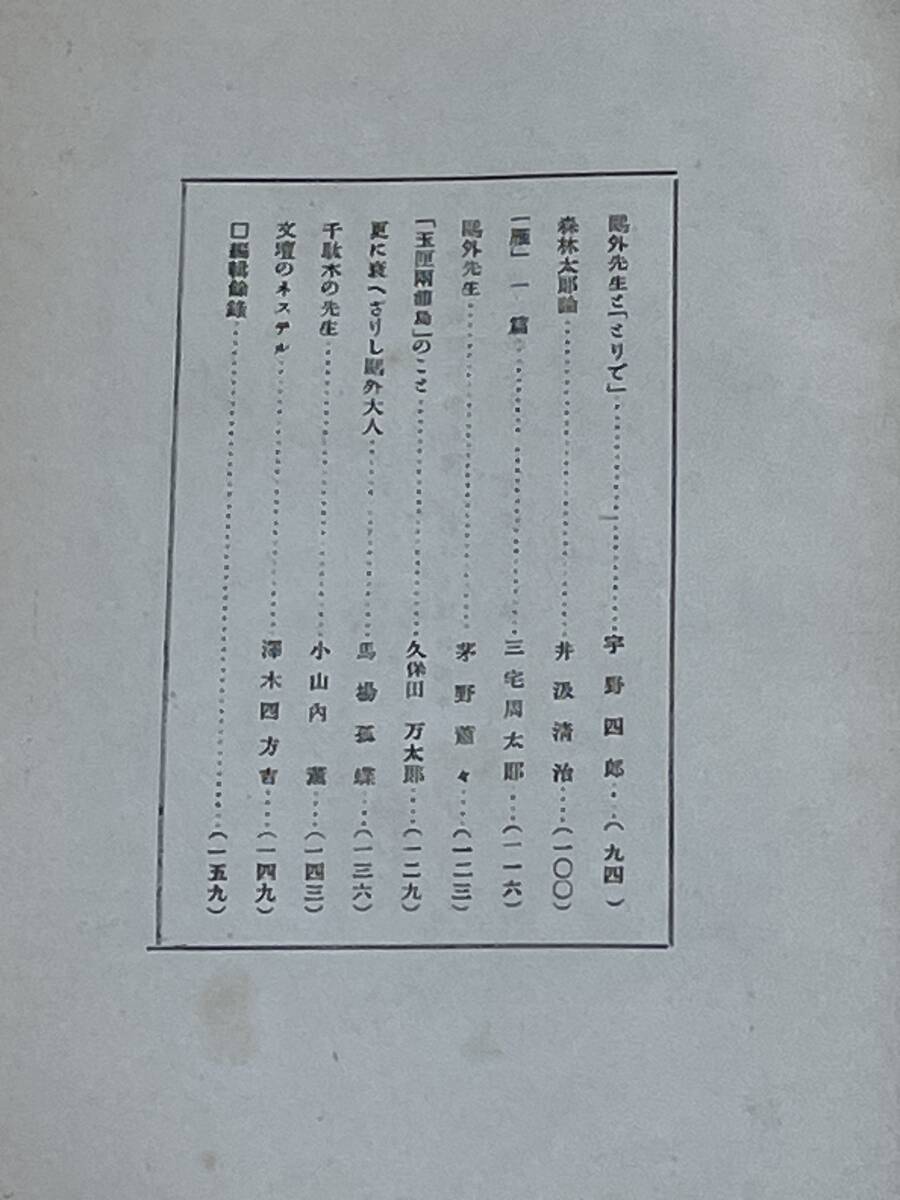 鷗外先生と「とりで」……宇野四郎……(九四)
森林太郎論……井汲清治……(一〇〇)
「雁」一篇……三宅周太郎……(一一六)
鷗外先生……茅野蕭々……(一二三)
「玉匣兩浦島」のこと……久保田万太郎……(一二九)
更に衰へざりし鷗外大人……馬場孤蝶……(一三六)
千駄木の先生……小山內薰……(一四三)
文壇のネステル……澤木四方吉……(一四九)
□編輯餘錄……(一五九)